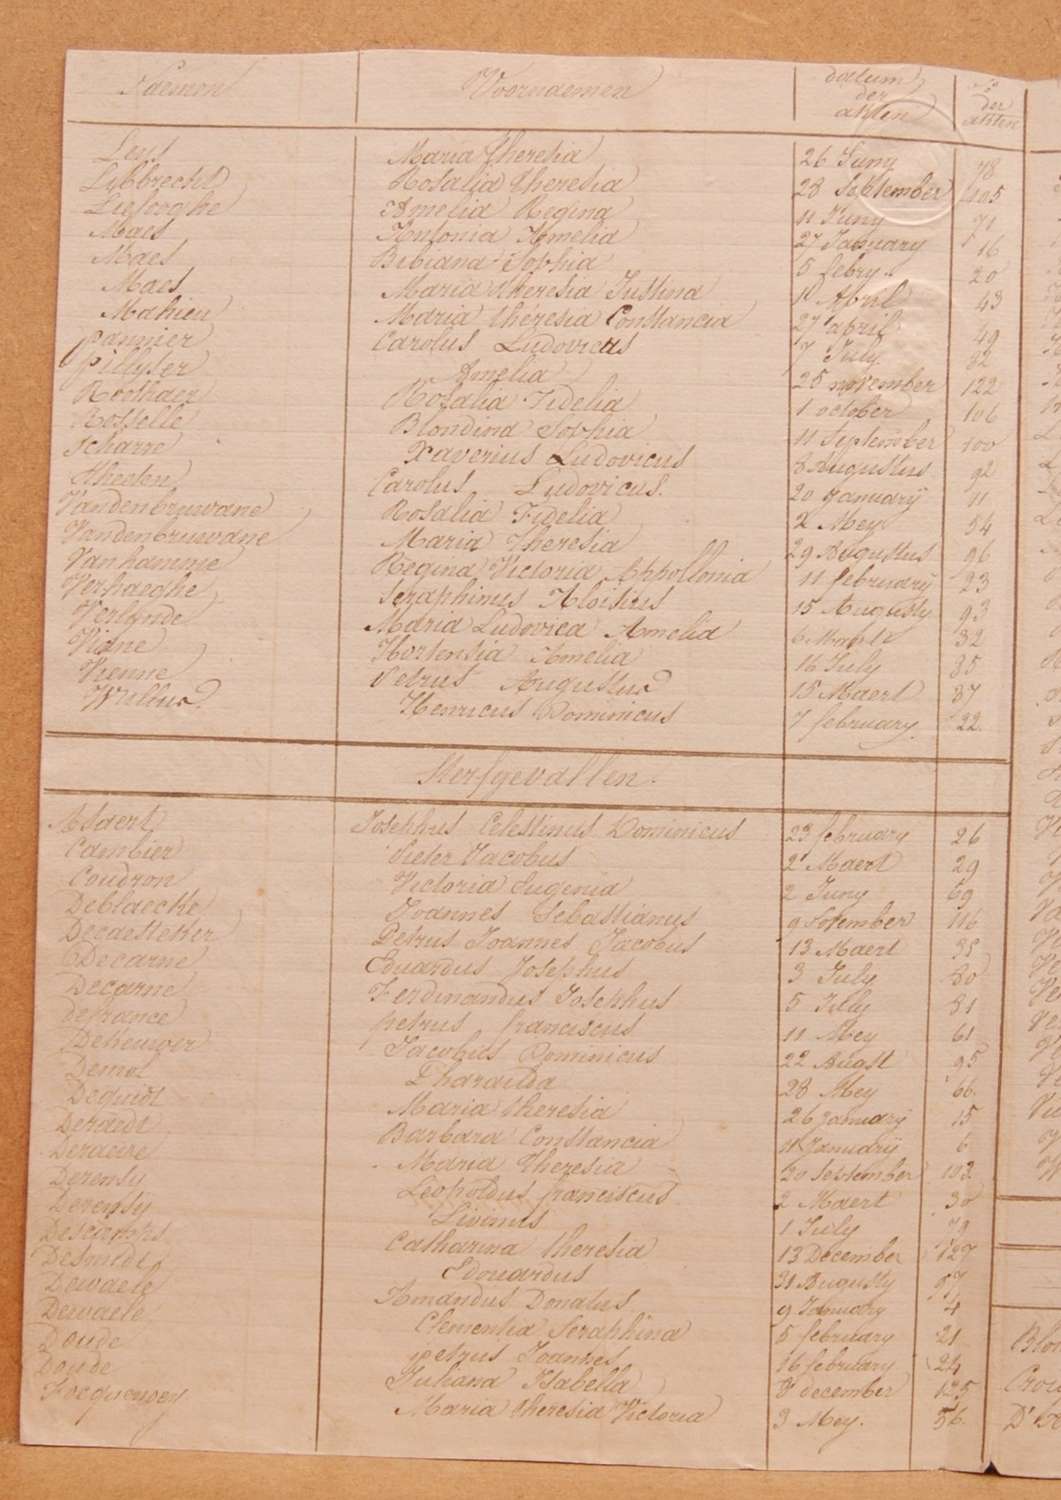 Naemen Voornaemen datum der akten No der akten
Leys Maria Theresia 26 Juny 78
Libbrecht Rosalia Theresia 28 September 105
Liefooghe Amelia Regina 11 Juny 71
Maes Antonia Amelia 27 January 16
Maes Bibiana Sophia 5 febry. 20
Maes Maria Theresia Justina 11 April 43
Mahieu Maria Theresia Constancia 27 april 49
pannier Carolus Ludovicus 7 July 82
pillyser Amelia 25 november 122
Roethaer Rosalia Fidelia 1 october 106
Rosselle Blondina Sophia 11 September 100
Scharre Xaverius Ludovicus 8 Augustus 92
Theeten Carolus Ludovicus. 20 January 11
Vandenbruwane Rosalia Fidelia 2 Mey 54
Vandenbruwane Maria Theresia 29 Augustus 96
Vanhamme Regina Victoria Appollonia 11 february 23
Verhaeghe Seraphinus Aloisius 15 Augusty 93
Verlynde Maria Ludovica Amelia 6 32
Viane Hortensia Amelia 16 July 85
Vienne Petrus Augustus 15 Maert 37
Wullus Henricus Dominicus 7 february. 22.
Sterfgevallen.
Asaert Josephus Celestinus Dominicus 23 february 26
Cambier Pieter Jacobus 2 Maert 29
Coudron Victoria Eugenia 2 Juny 69
Deblaecke Joannes Sebastianus 9 november 116
Decaesteker Petrus Joannes Jacobus 13 Maert 35
Decarne Eduardus Josephus 3 July 80
Decarne Ferdinandus Josephus 5 July 81
defrance petrus franciscus 11 Mey 61
Deheuwer Jacobus Dominicus 22 Augst 95
Demol Pharaïlda 28 Mey 66.
Dequidt Maria Theresia 26 January 15
Deraedt Barbara Constancia 11 January 6
Deraeve Maria Theresia 20 September 103
Derensy Leopoldus franciscus 2 Maert 30
Derensy Livinus 1 July 79
Descamps Catharina Theresia 13 December 127
Desmidt Edouardus 31 Augusty 97
Dewaele Amandus Donatus 9 January 4
Dewaele Clementia Seraphina 5 february 21
Doude petrus Joannes 16 february 24
Doude Juliana Isabella 8 december 125
Focquenoey Maria Theresia Victoria 3 Mey. 56.